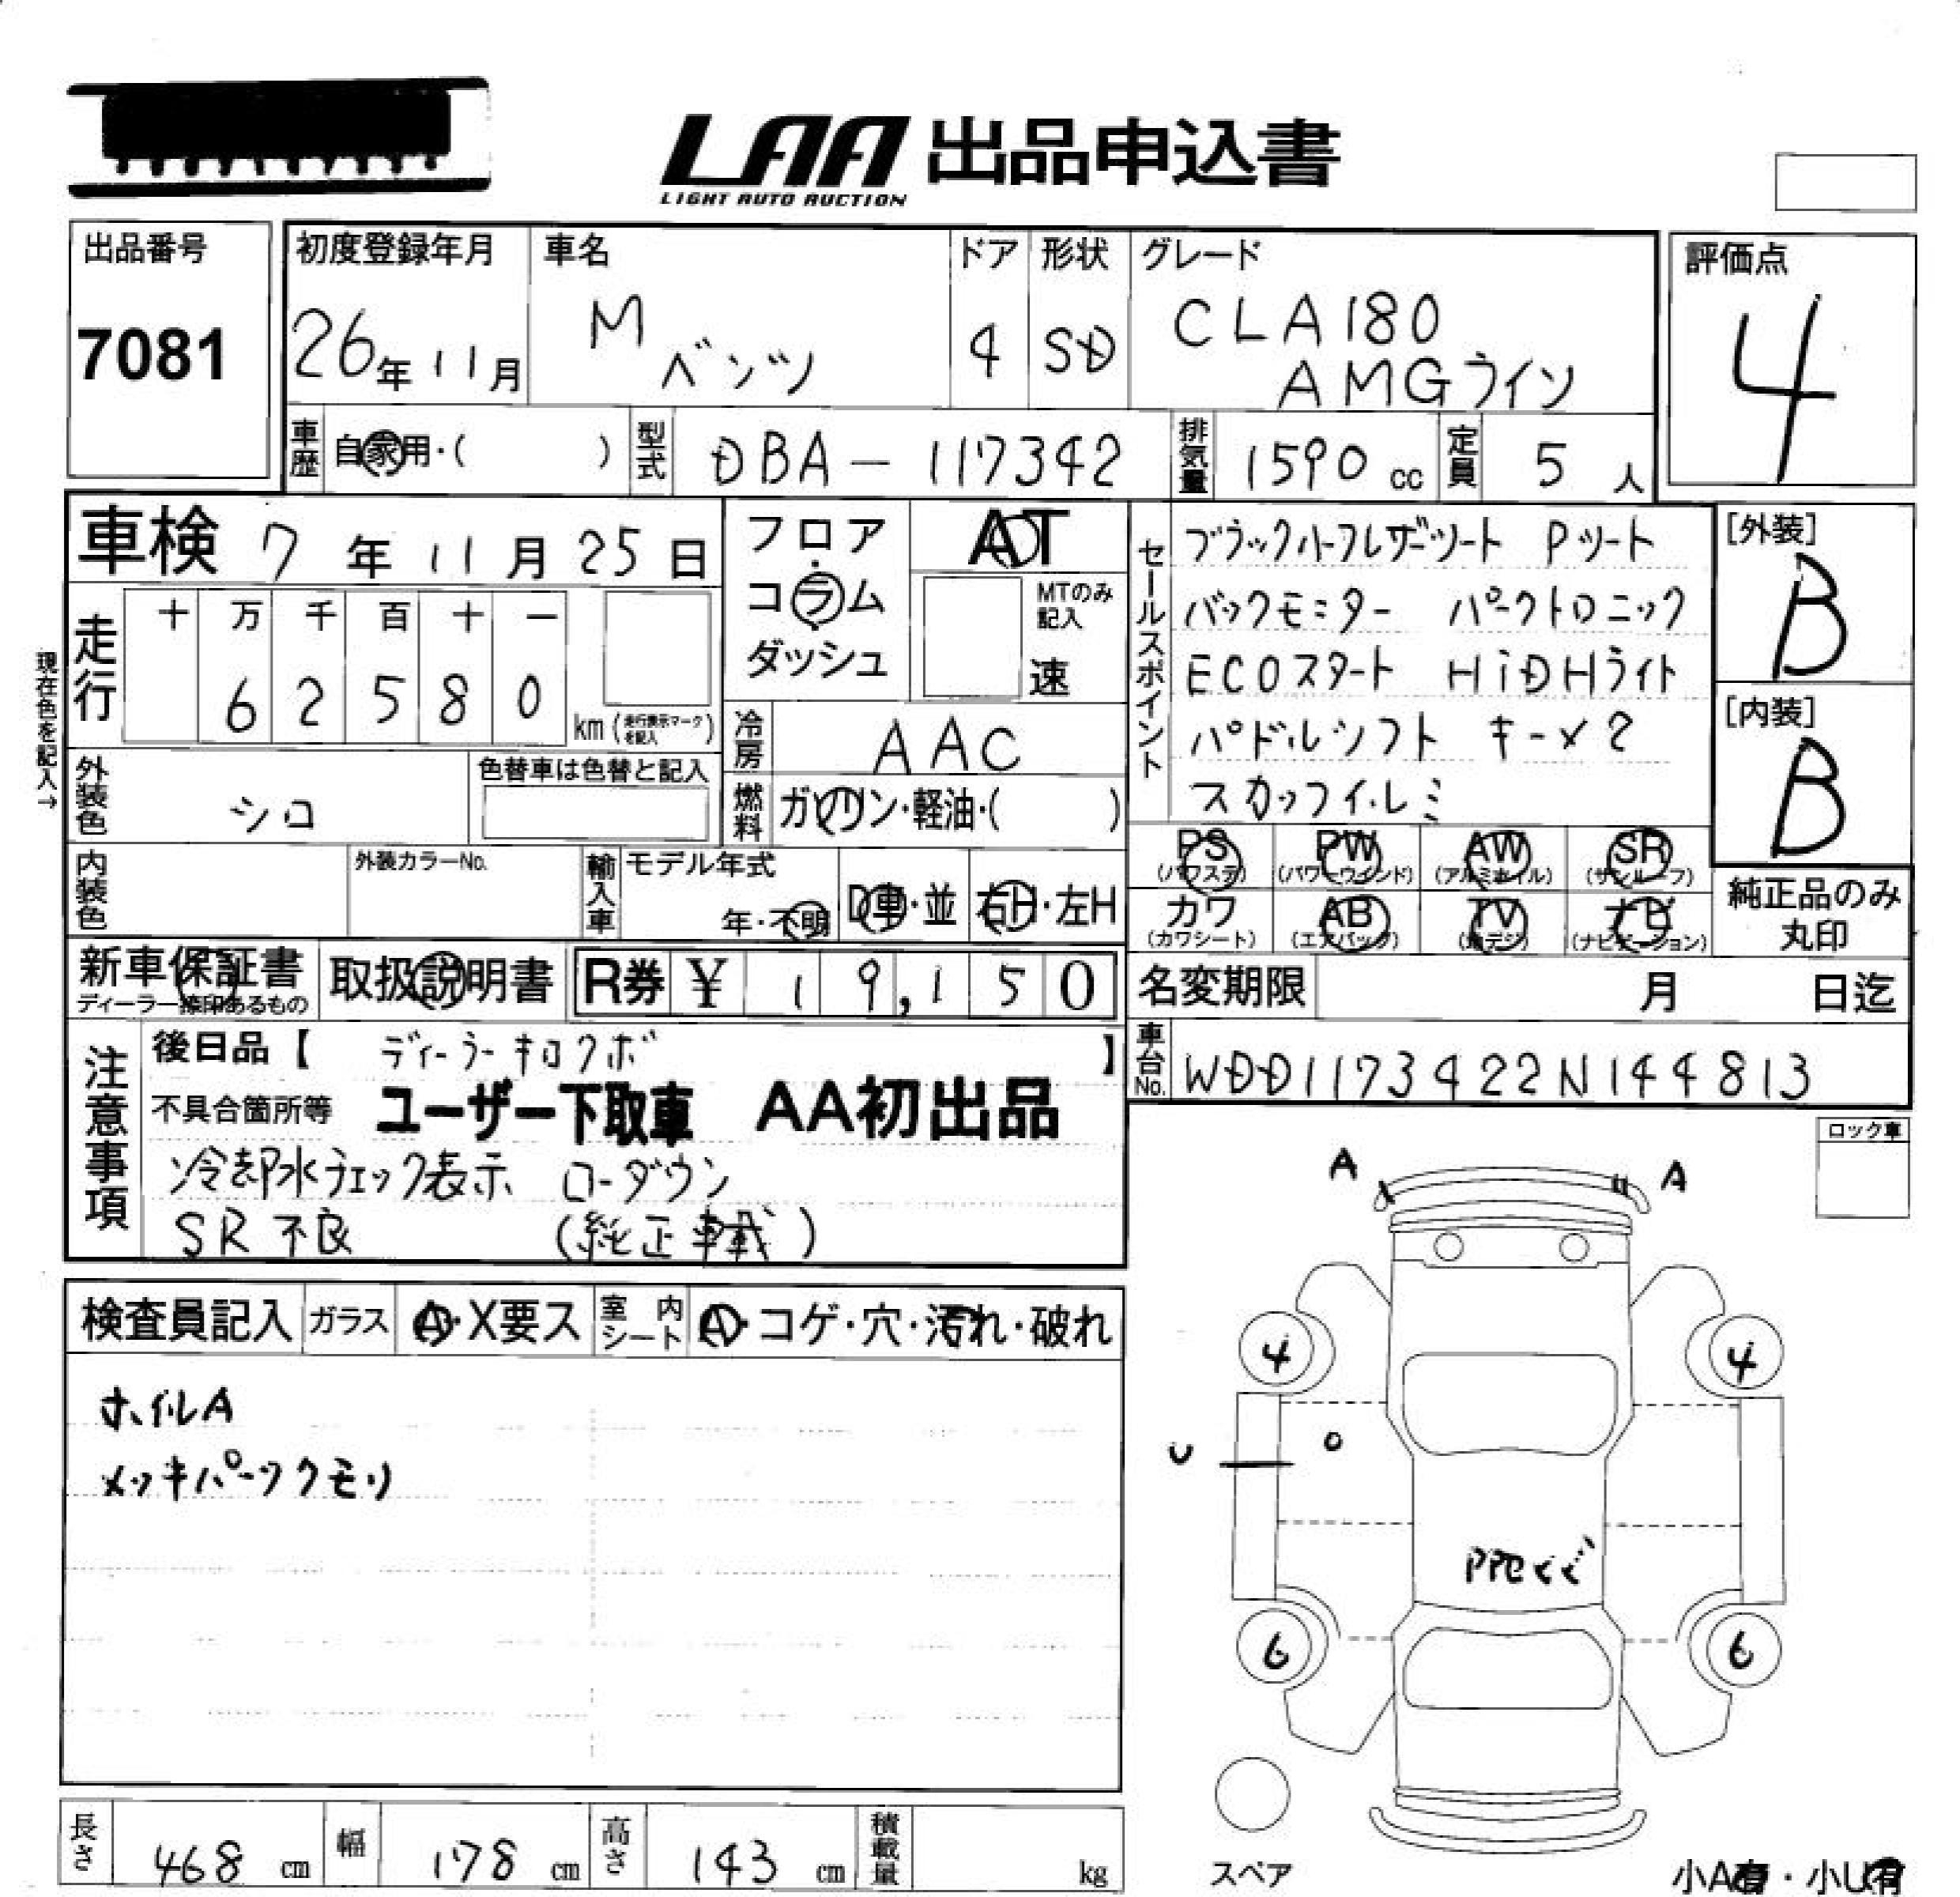 LAA 出品申込書
LIGHT AUTO AUCTION
出品番号
7081
初度登録年月
26年 11月
車名
M
ベンツ
ドア
4
形状
SD
グレード
CLA180
AMGライン
評価点
4
車歴
自家用・( )
型式
DBA-117342
排気量
1590 cc
定員
5 人
車検 7年 11月 25日
フロア・
コラム
ダッシュ
AT
MTのみ
記入
速
現在色を記入→
走行
十 万 千 百 十 一
6 2 5 8 0
km (走行表示マークを記入)
冷房
AAC
燃料
ガソリン・軽油・( )
外装色
シロ
色替車は色替と記入
内装色
外装カラーNo.
輸入車
モデル年式
年・不明
D車・並
右H・左H
セールスポイント
ブラックハーフレザーシート Pシート
バックモニター パークトロニック
ECOスタート HiDHライト
パドルシフト キー×2
スカッフイルミ
[外装]
B
[内装]
B
PS
(パワステ)
PW
(パワーウインド)
AW
(アルミホイル)
SR
(サンルーフ)
カワ
(カワシート)
AB
(エアバック)
TV
(地デジ)
ナビ
(ナビゲーション)
純正品のみ
丸印
新車保証書
ディーラー捺印あるもの
取扱説明書
R券 ¥ 19,150
名変期限 月 日迄
注意事項
後日品【 ディーラーキロクボ 】
不具合箇所等 ユーザー下取車 AA初出品
冷却水チェック表示 ローダウン
SR不良 (純正車載)
車台No.
WDD1173422N144813
ロック車
検査員記入
ガラス
A・X要ス
室内
シート
A・コゲ・穴・汚れ・破れ
ホイルA
メッキパーツクモリ
A A
4 4
U
PPセど
6 6
スペア
小A有・小U有
長さ
468 cm
幅
178 cm
高さ
143 cm
積載量
kg